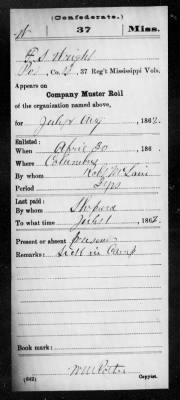 (Confederate.)
W 37 Miss.
S. Wright
Co. , 37 Reg't Mississippi Vols.
Appears on
Company Muster Roll
of the organization named above,
for July & Aug, 1862.
Enlisted:
When April 30, 186 .
Where Columbus
By whom Robt McLain
Period 3 yrs
Last paid:
By whom
To what time July 1, 1862.
Present or absent Present
Remarks: Sick in Camp
Book mark:
(642) Copyist.